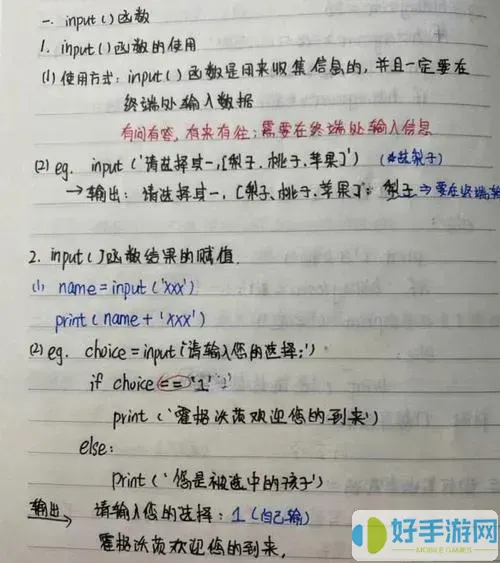 一. input()函数
1. input()函数的使用
(1) 使用方式: input()函数是用来收集信息的, 并且一定要在
终端处输入数据
有问有答, 有来有往: 需要在终端处输入信息
(2) eg. input('请选择其一, [梨子、桃子、苹果]')
→输出: 请选择其一, [梨子、桃子、苹果]: 梨子 ⇒ 要在终端
2. input()函数结果的赋值
(1) name=input('xxx')
print(name+'xxx')
(2) eg. choice=input('请输入您的选择:')
if choice == '1':
print('霍格沃茨欢迎您的到来')
else:
print('您是被选中的孩子')
输出→ 请输入您的选择: 1 (自己输)
霍格沃茨欢迎您的到来.
好手游网
MOBILE GAMES